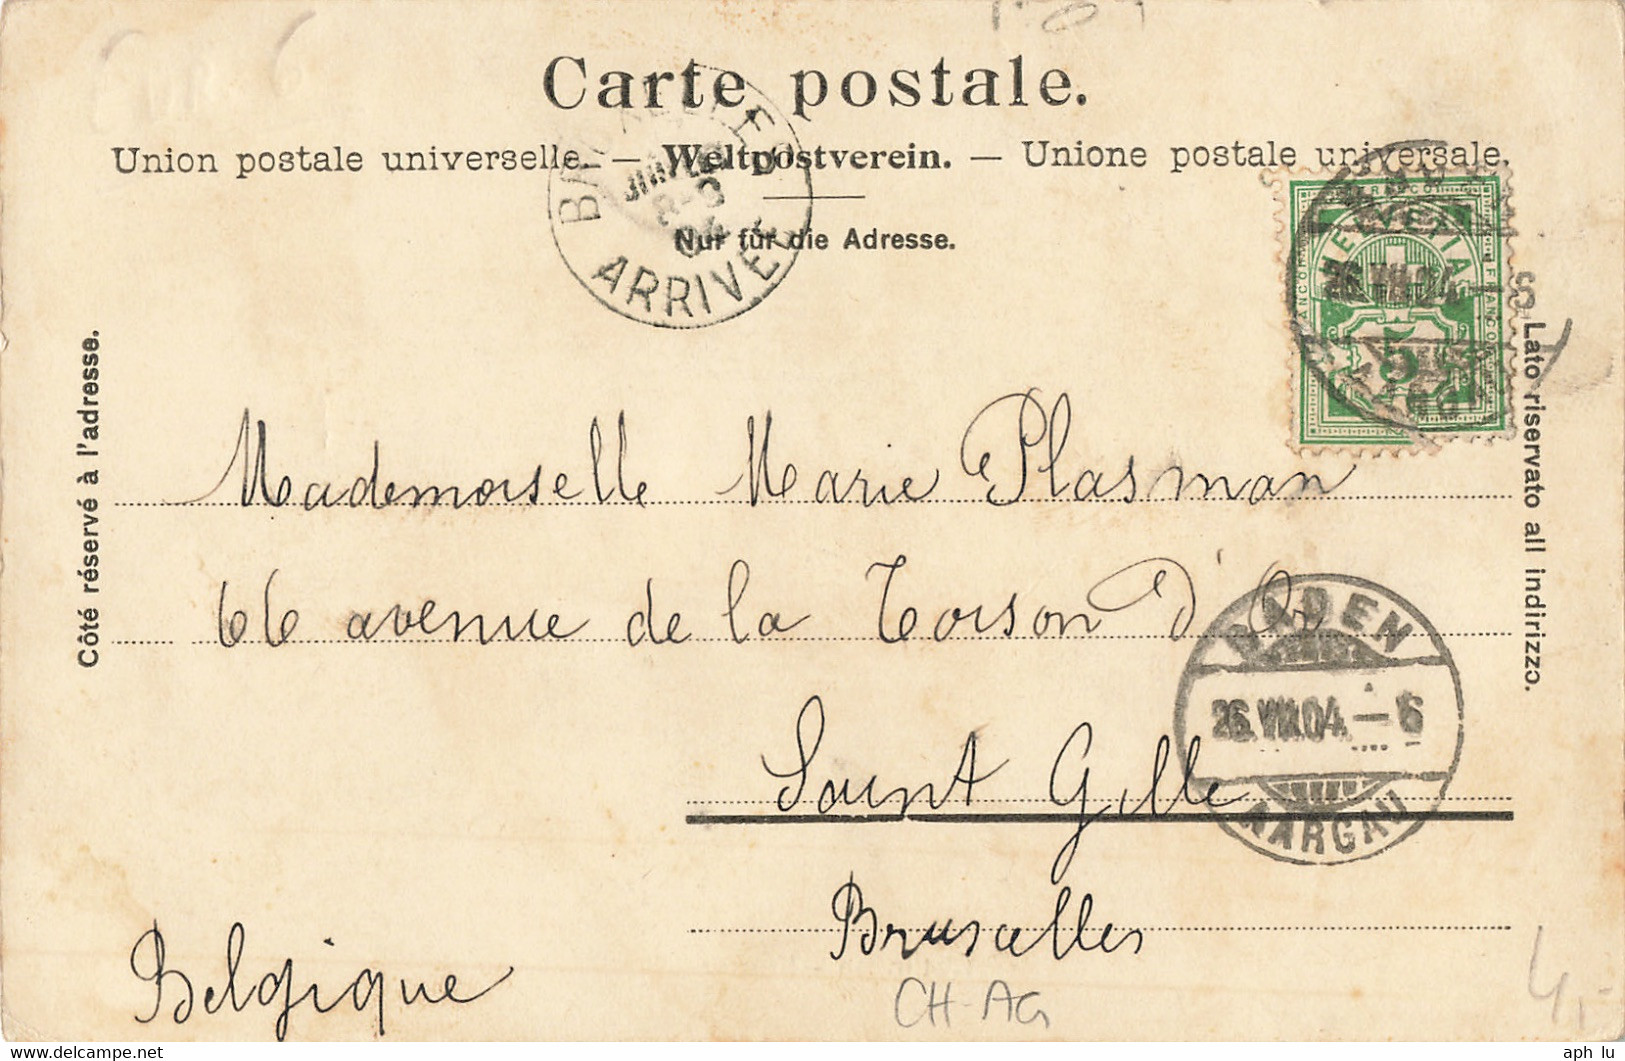 Carte postale.
Union postale universelle. — Weltpostverein. — Unione postale universale.
Nur für die Adresse.
BRUXELLES
8-9
04
ARRIVÉE
FRANCO
HELVETIA
FRANCO
FRANCO
26.VII.04
5
Côté réservé à l'adresse.
Lato riservato all indirizzo.
Mademoiselle Marie Plasman
66 avenue de la Toison d'Or
BADEN
26.VII.04.—6
AARGAU
Saint Gille
Bruxelles
Belgique
CH-AG
4,-
aph lu